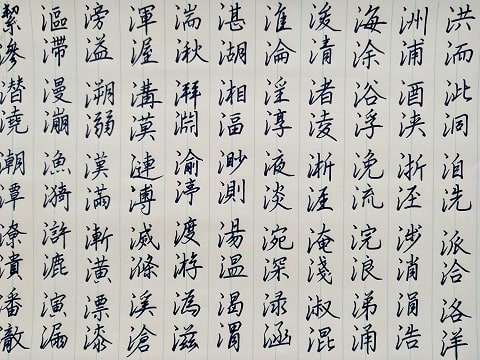 洪洏泚洞洎洗派洽洛洋
洲浦酒浹浙涇涉消涓浩
海涂浴浮浼流浣浪涕涌
浚清渚淩淅涯淹淺淑混
淮淪淫淳液淡涴深淥涵
湛湖湘湢渺測湯溫渴渭
湍湫湃淵渝渟渡游溈滋
渾渥溝漠漣溥滅滌溪滄
滂溢溯溺漢滿漸潢漂漆
漚滯漫漰漁漪滸漉演漏
潔滲潛澆潮潭潦潰潘